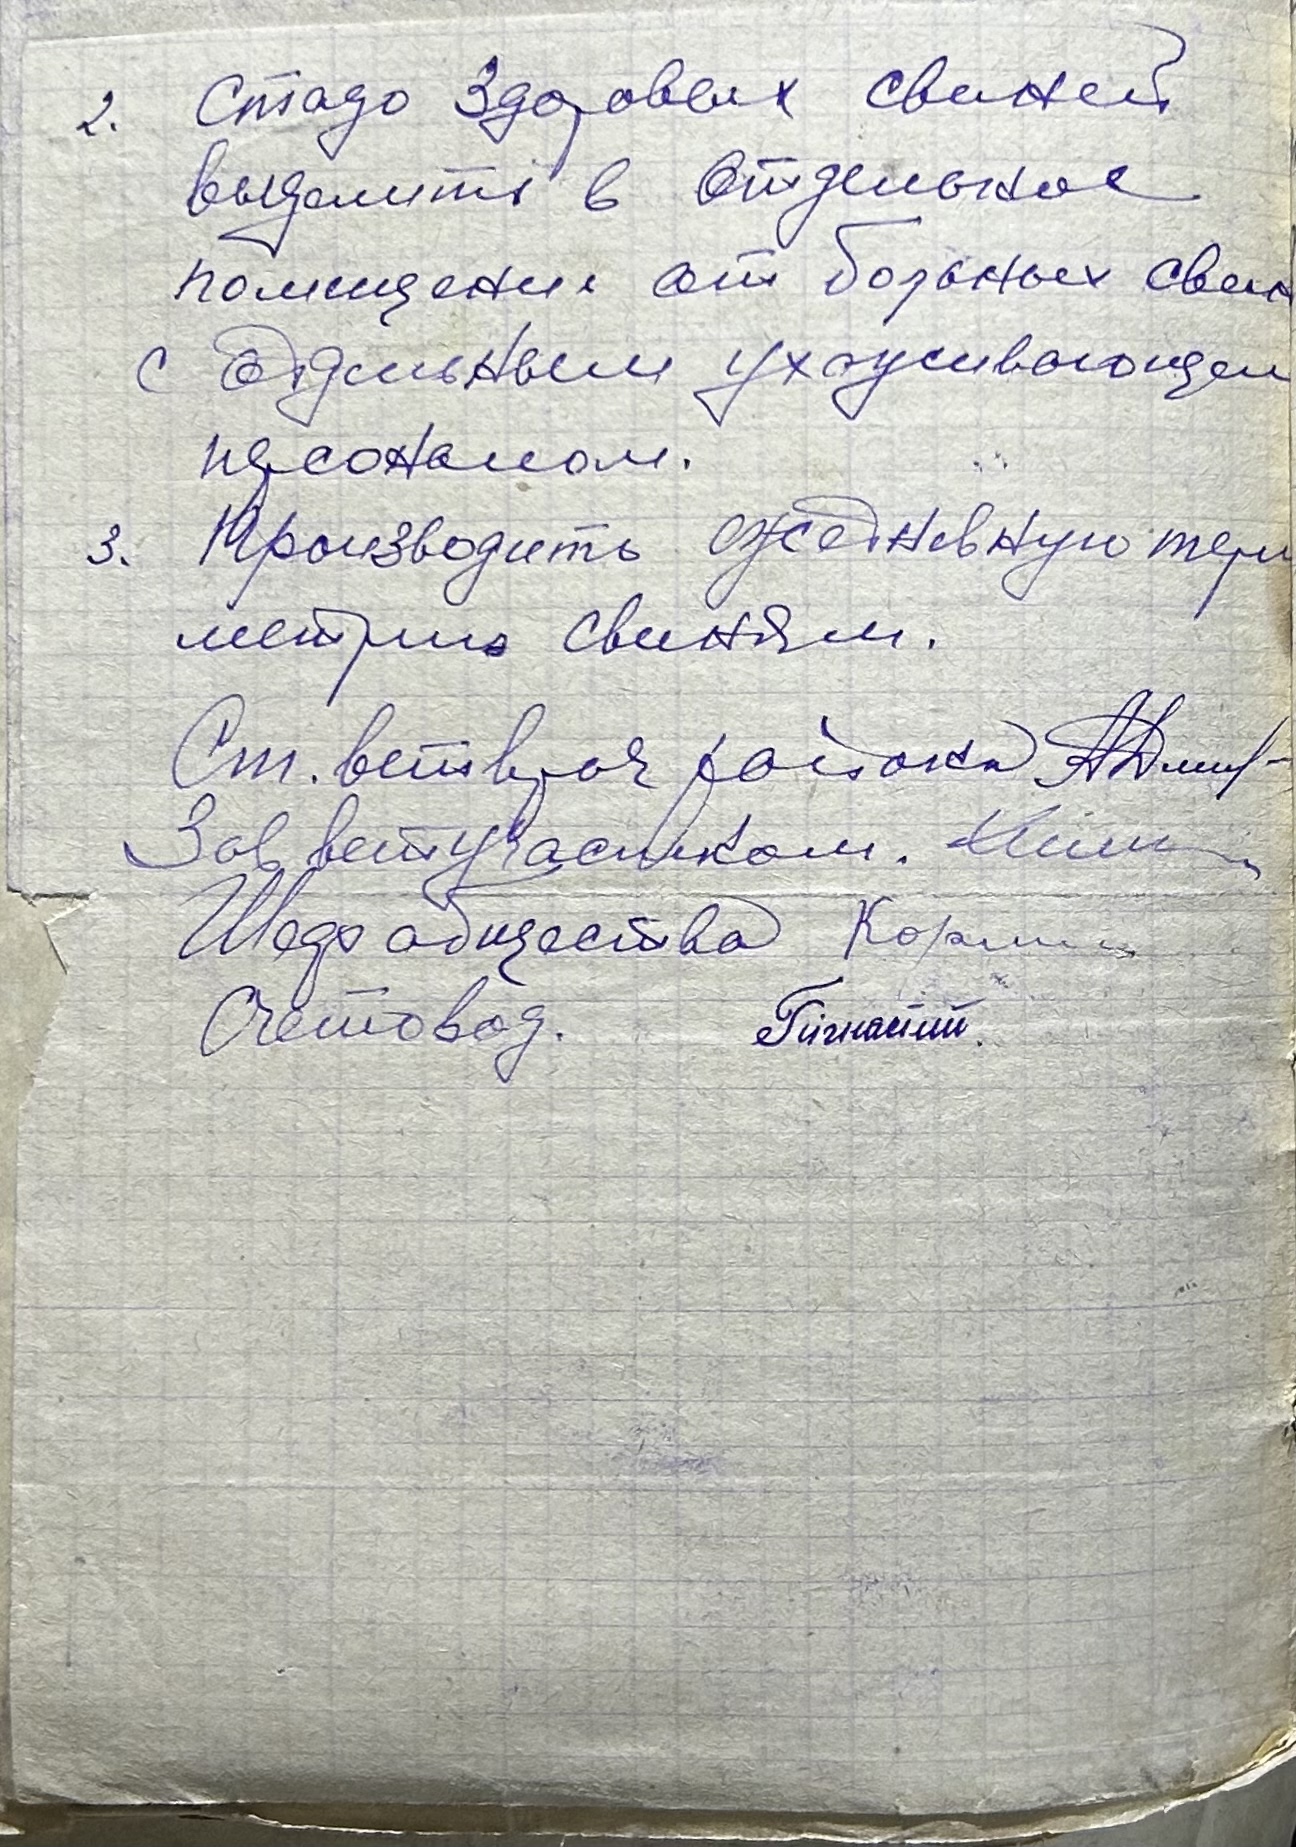 2. Стадо Здоровых свиней
выделить в отдельное
помещение от больных свин
с отдельным ухаживающем
персоналом.
3. Производить ежедневную терм
метрию свиням.
Ст. ветврач района
Зав ветучастком.
общества
Счетовод.